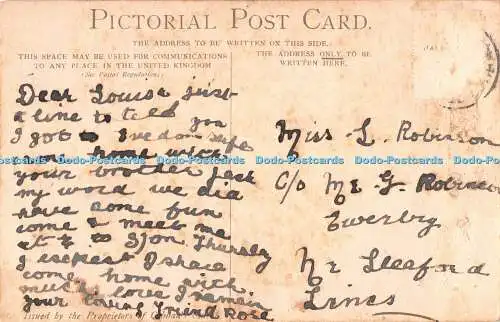 PICTORIAL POST CARD.
THE ADDRESS TO BE WRITTEN ON THIS SIDE.
THIS SPACE MAY BE USED FOR COMMUNICATIONS
TO ANY PLACE IN THE UNITED KINGDOM
(See Postal Regulations)
THE ADDRESS ONLY TO BE
WRITTEN HERE.
Dear Louise just
a line to tell you
I got to Swedon safe
came home with
your brother Jack
my word we did
have some fun
come & meet me
at & to S Jon Thursby
I expect I shall
come home with
much love I remain
your loving friend Rose
Miss L. Robinson
C/o Mr G Robinson
Ewerby
Nr Sleaford
Lincs
Issued by the Proprietors of
Dodo-Postcards Dodo-Postcards Dodo-Postcards Dodo-Postcards Dodo-Postcards Dodo-Postcards